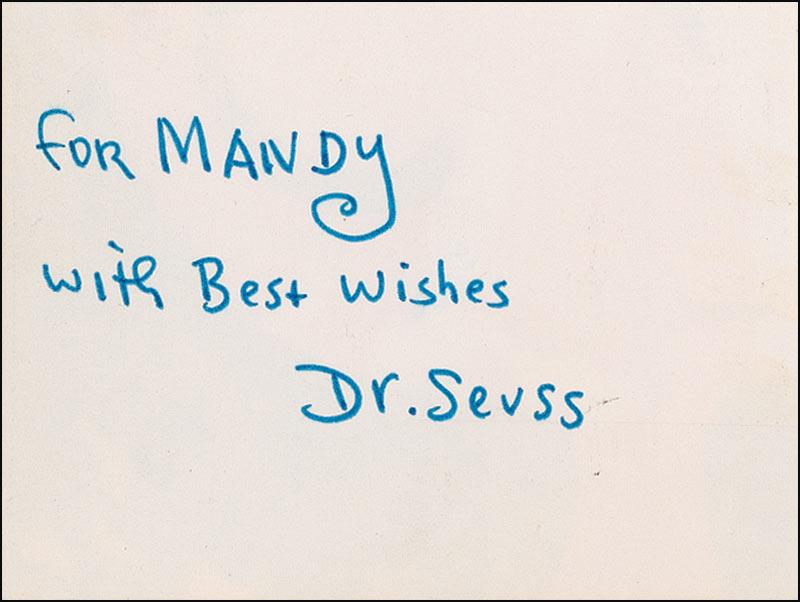 For MANDY
with Best wishes
Dr. Seuss